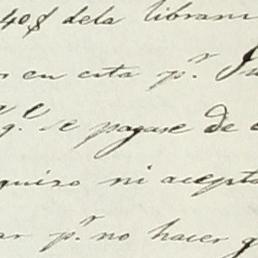 40$ dela libram
en esta p.r Ju
q.e se pagase de
quiso ni acepta
ar p.r no hacer